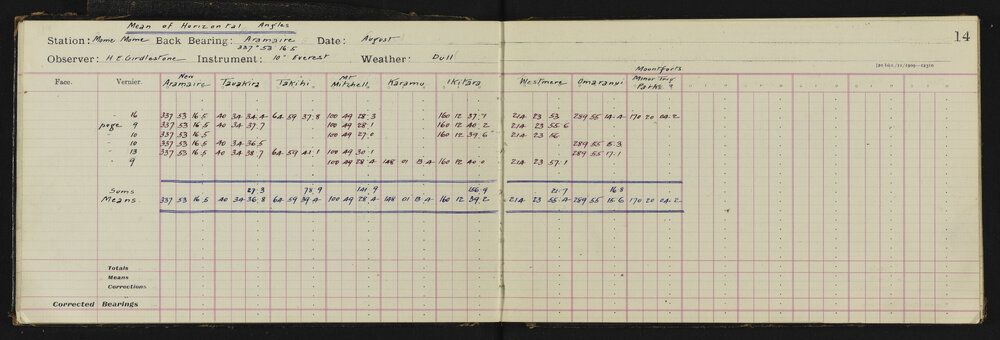 Mean of Horizontal Angles
Station: Mome Mome Back Bearing: Aramaire Date: August 14
337° 53 16.5
Observer: H E Girdlestone Instrument: 10" Everest Weather: Dull
Face. Vernier. New Aramaire Tauakira Takihi Mt Mitchell Karamu Ikitara Westmere Omaranui Mountforts Minor Trig Parks ?
16 337 53 16.5 40 34 34.4 64 59 37.8 100 49 28.3 160 12 37.7 214 23 53 289 55 14.4 170 20 04.2
page 9 337 53 16.5 40 34 37.7 100 49 28.1 160 12 40.2 214 23 55.6
10 337 53 16.5 100 49 27.0 160 12 39.6 214 23 56
10 337 53 16.5 40 34 36.5 289 55 15.3
13 337 53 16.5 40 34 38.7 64 59 41.1 100 49 30.1 289 55 17.1
9 100 49 28.4 148 01 13.4 160 12 40.0 214 23 57.1
Sums 27.3 78.9 141.9 156.9 21.7 16.8
Means. 337 53 16.5 40 34 36.8 64 59 39.4 100 49 28.4 148 01 13.4 160 12 39.2 214 23 55.4 289 55 15.6 170 20 04.2
Totals
Means
Corrections
Corrected Bearings